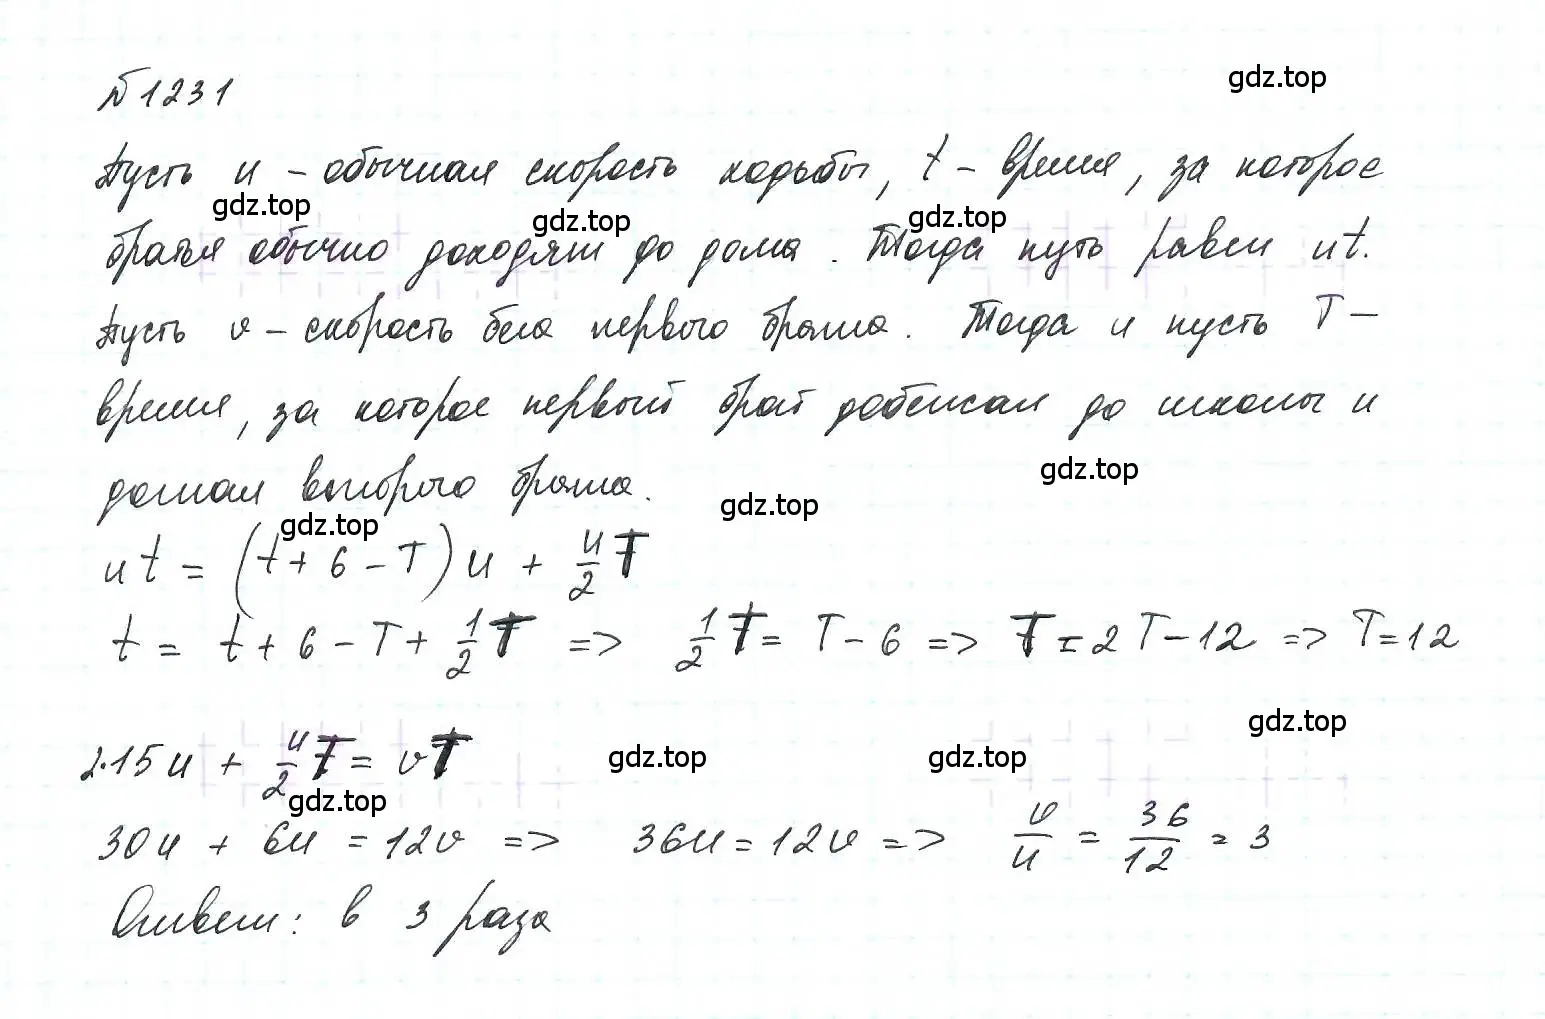 №1231
gdz.top
Пусть u - обычная скорость ходьбы, t - время, за которое
gdz.top gdz.top gdz.top
братья обычно доходят до дома. Тогда путь равен ut.
Пусть v - скорость бега первого брата. Тогда и пусть T -
время, за которое первый брат добежал до школы и
gdz.top
догнал второго брата.
gdz.top gdz.top
ut = (t + 6 - T)u + u/2 T
t = t + 6 - T + 1/2 T => 1/2 T = T - 6 => T = 2T - 12 => T = 12
gdz.top
2·15u + u/2 T = vT
gdz.top gdz.top
gdz.top
30u + 6u = 12v => 36u = 12v => v/u = 36/12 = 3
Ответ: в 3 раза